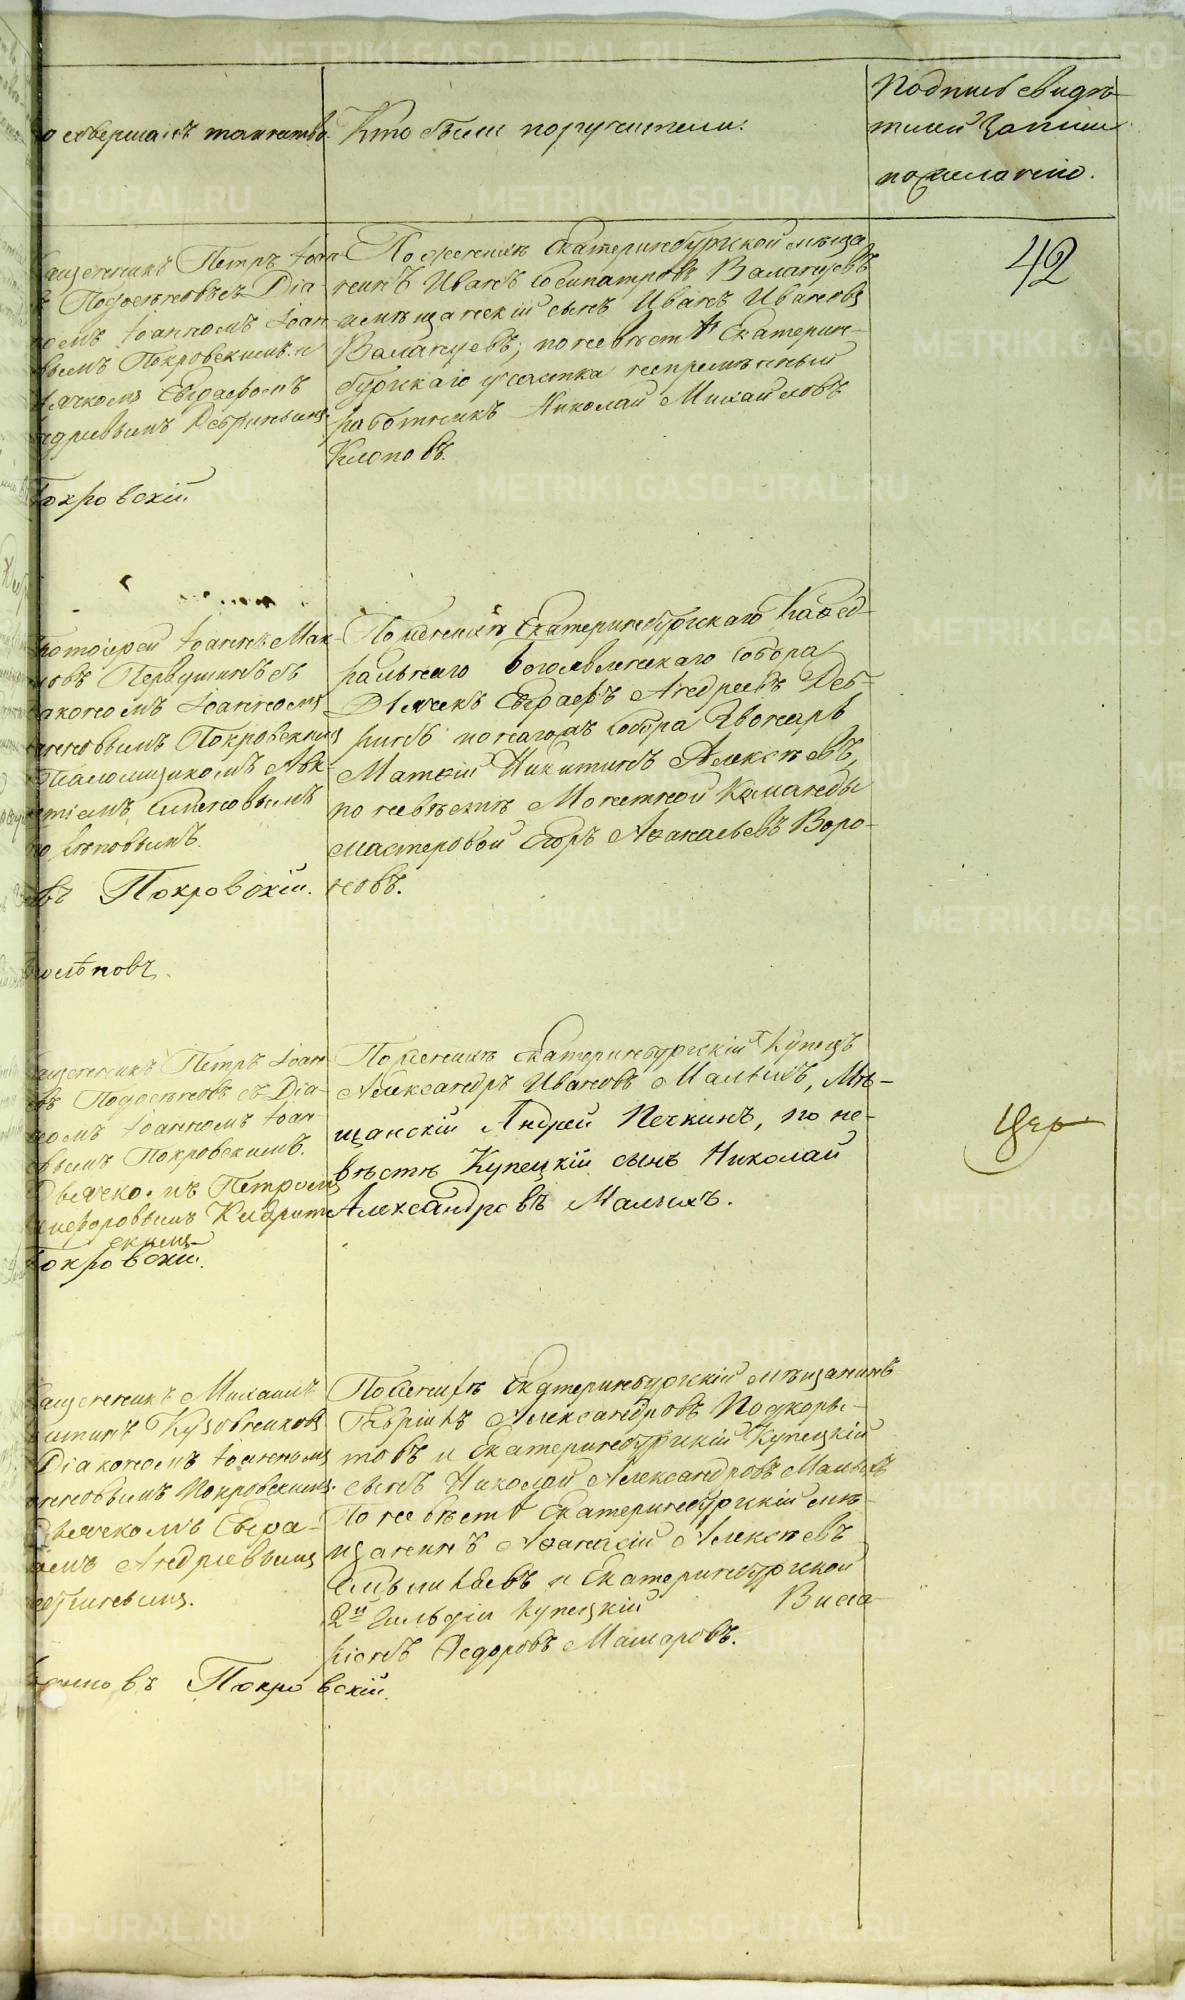 о совершалъ таинство.
Кто были поручители.
Подпись свидѣ-
телей записи
по желанію.
42
Священникъ Петръ Іоан-
Подосеновъ съ Діа-
номъ Іоанномъ Іоан-
вымъ Покровскимъ и
дьячкомъ Евграфомъ
ндреевымъ Дебринымъ.
Покровскій
По женихѣ Екатеринбургской мѣща-
нинъ Иванъ Сосипатровъ Баландуевъ
и мѣщанскій сынъ Иванъ Ивановъ
Баландуевъ; по невѣстѣ Екатерин-
бургскаго участка непремѣнный
работникъ Николай Михайловъ
Клоповъ.
Протоіерей Іоаннъ Мак-
мовъ Первушинъ съ
іакономъ Іоанномъ
анновымъ Покровскимъ
Псаломщикомъ Авк-
сентіемъ
въ Покровскій.
По женихѣ Екатеринбургскаго Каѳед-
ральнаго Богоявленскаго Собора
Дьячекъ Евграфъ Андреевъ Деб-
ринъ по нагомъ Собора Звонарь
Матѳій Никитинъ Алексѣевъ,
по невѣстѣ Монетной Команды
мастеровой Егоръ Аѳанасьевъ Воро-
новъ.
Священникъ Петръ Іоан-
въ Подосеновъ съ Діа-
номъ Іоанномъ Іоан-
овымъ Покровскимъ.
Дьячкомъ Петромъ
Никифоровымъ
скимъ
Покровскій.
По женихѣ Екатеринбургскій Купецъ
Александръ Ивановъ Малыхъ, Мѣ-
щанскій Андрей Печкинъ, по не-
вѣстѣ Купецкій сынъ Николай
Александровъ Малыхъ.
Священникъ Михаилъ
Кузовниковъ
Діакономъ Іоанномъ
анновымъ Покровскимъ.
Дьячкомъ Евгра-
фомъ Андреевымъ
Дебринымъ.
Іоанновъ Покровскій.
По женихѣ Екатеринбургскій мѣщанинъ
Гавріилъ Александровъ Подкоры-
товъ и Екатеринбургскій Купецкій
сынъ Николай Александровъ Малыхъ
По невѣстѣ Екатеринбургскій мѣ-
щанинъ Аѳанасій Алексѣевъ
и Екатеринбургской
2й Гильдіи Купецкій Висса-
ріонъ Ѳедоровъ Макаровъ.